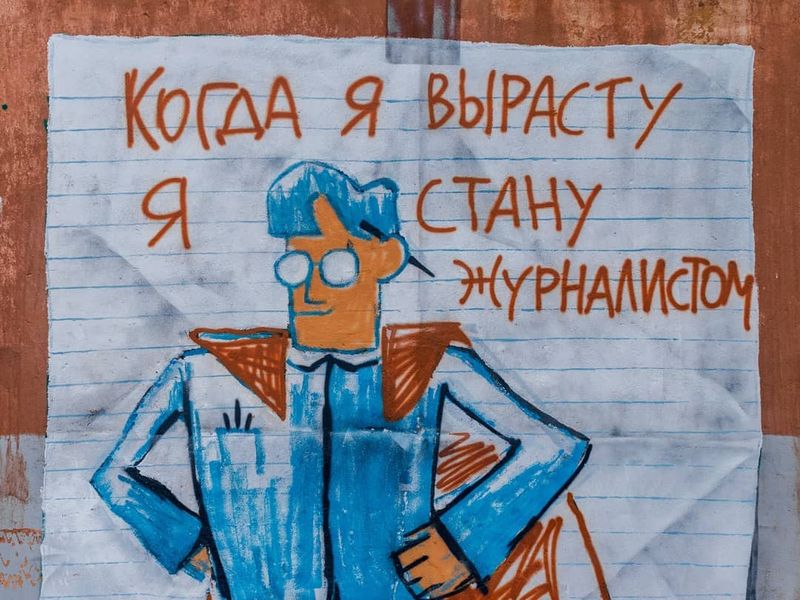 Когда я вырасту
я стану
журналистом